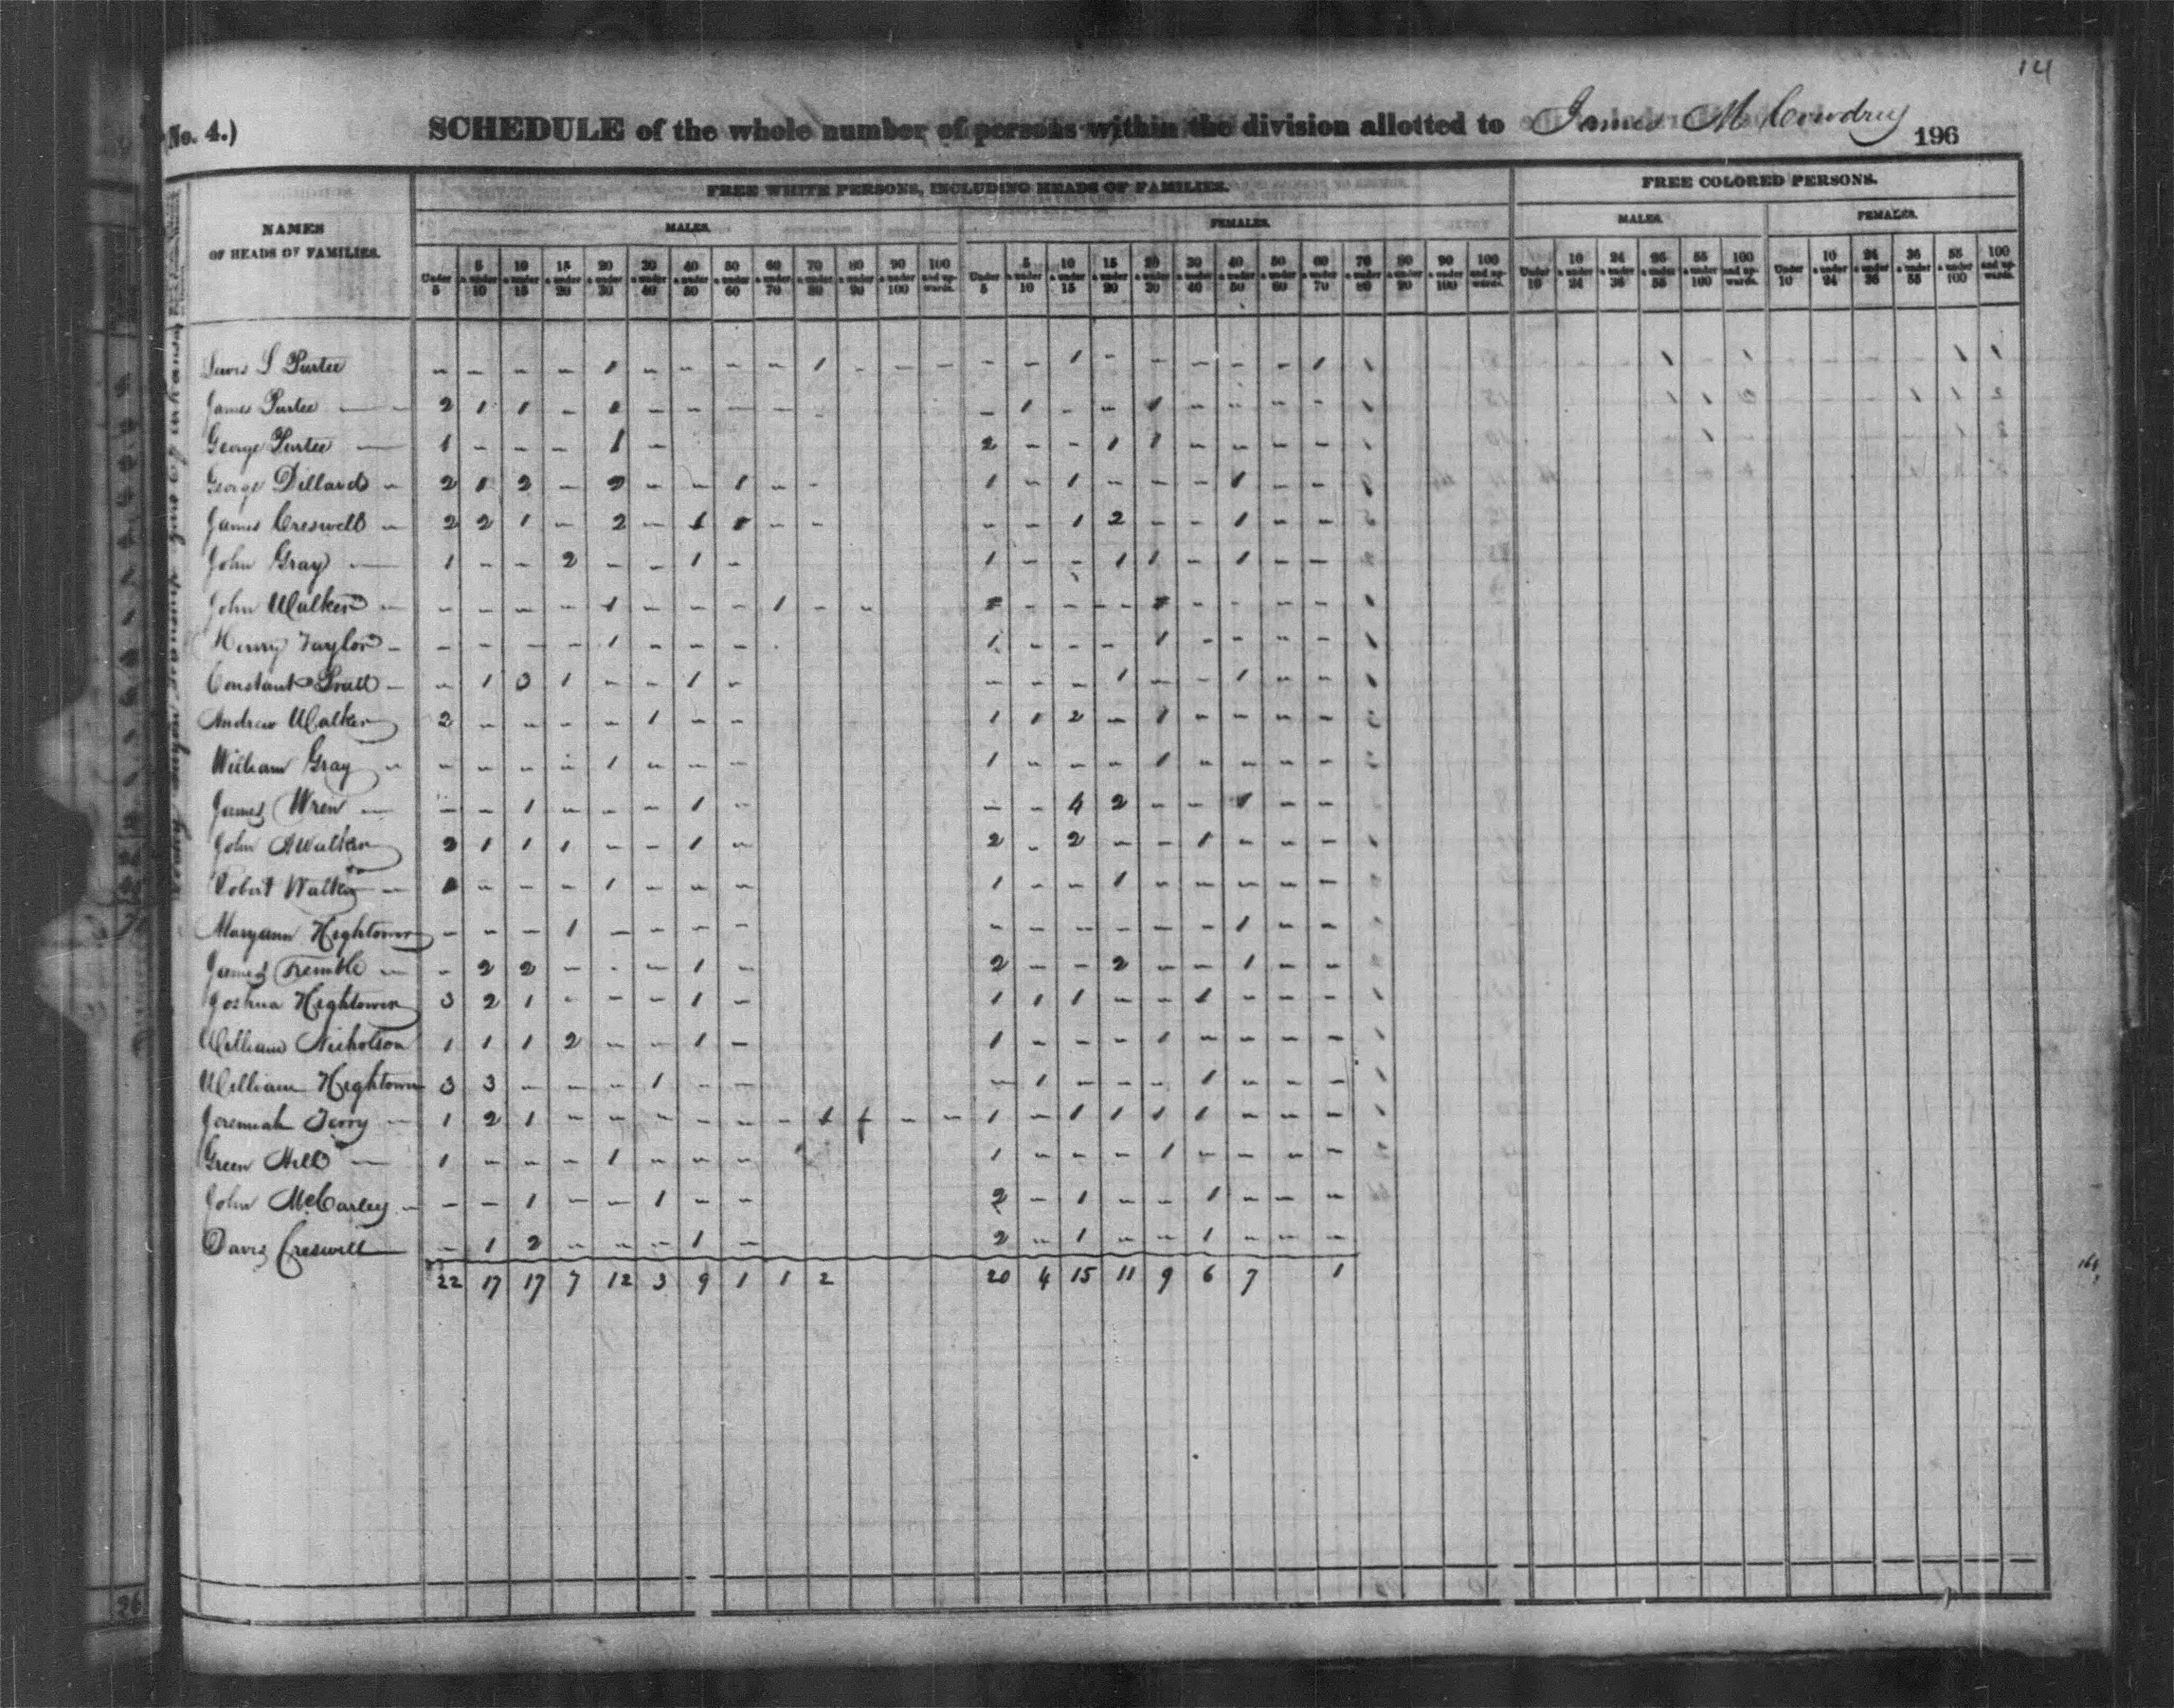 14
(No. 4.) SCHEDULE of the whole number of persons within the division allotted to James M Cowdrey 196
NAMES OF HEADS OF FAMILIES.
FREE WHITE PERSONS, INCLUDING HEADS OF FAMILIES.
FREE COLORED PERSONS.
MALES. FEMALES. MALES. FEMALES.
Under 5 | 5 & under 10 | 10 & under 15 | 15 & under 20 | 20 & under 30 | 30 & under 40 | 40 & under 50 | 50 & under 60 | 60 & under 70 | 70 & under 80 | 80 & under 90 | 90 & under 100 | 100 and upwards. | Under 5 | 5 & under 10 | 10 & under 15 | 15 & under 20 | 20 & under 30 | 30 & under 40 | 40 & under 50 | 50 & under 60 | 60 & under 70 | 70 & under 80 | 80 & under 90 | 90 & under 100 | 100 and upwards. | Under 10 | 10 & under 24 | 24 & under 36 | 36 & under 55 | 55 & under 100 | 100 and upwards. | Under 10 | 10 & under 24 | 24 & under 36 | 36 & under 55 | 55 & under 100 | 100 and upwards.
S Purtee - - - - 1 - - - - 1 - - - - - 1 - - - - - 1
James Purtee - 2 1 1 - 1 - - - - - 1 - - 1 - - - -
George Purtee - 1 - - - 1 - 2 - - 1 1 - - - -
George Dillard - 2 1 2 - 2 - - 1 - - 1 - 1 - - - 1 - -
James Creswell - 2 2 1 - 2 - 1 1 - - - - 1 2 - - 1 - -
John Gray - 1 - - 2 - - 1 - 1 - - 1 1 - 1 - -
John Walker - - - - - 1 - - - 1 - - 1 - - - 1 - - - -
Henry Taylor - - - - - 1 - - - 1 - - - 1 - - - -
Constant - - 1 3 1 - - 1 - - - - 1 - - 1 - -
Andrew Walker 2 - - - - 1 - - 1 1 2 - 1 - - - -
William Gray - - - - - 1 - - - 1 - - - 1 - - - -
James Wren - - - 1 - - - 1 - - - 4 2 - - 1 - -
John A Walker 2 1 1 1 - - 1 - 2 - 2 - - 1 - - -
Robert Walker - 1 - - - 1 - - - 1 - - 1 - - - - -
Maryann Hightower - - - 1 - - - - - - - - - - 1 - -
James Tremble - - 2 2 - - - 1 - 2 - - 2 - - 1 - -
Joshua Hightower 3 2 1 - - - 1 - 1 1 1 - - 1 - - -
William Nicholson 1 1 1 2 - - 1 - 1 - - - 1 - - - -
William Hightower 3 3 - - - 1 - - - 1 - - - 1 - - -
Jeremiah Terry - 1 2 1 - - - - - - 1 - - 1 - 1 1 1 1 - - -
Green Hill - 1 - - - 1 - - - 1 - - - 1 - - - -
John McCarley - - - 1 - - 1 - - 2 - 1 - - 1 - - -
Davis Creswell - 1 2 - - - 1 - 2 - 1 - - 1 - - -
22 17 17 7 12 3 9 1 1 2 20 4 15 11 9 6 7 1